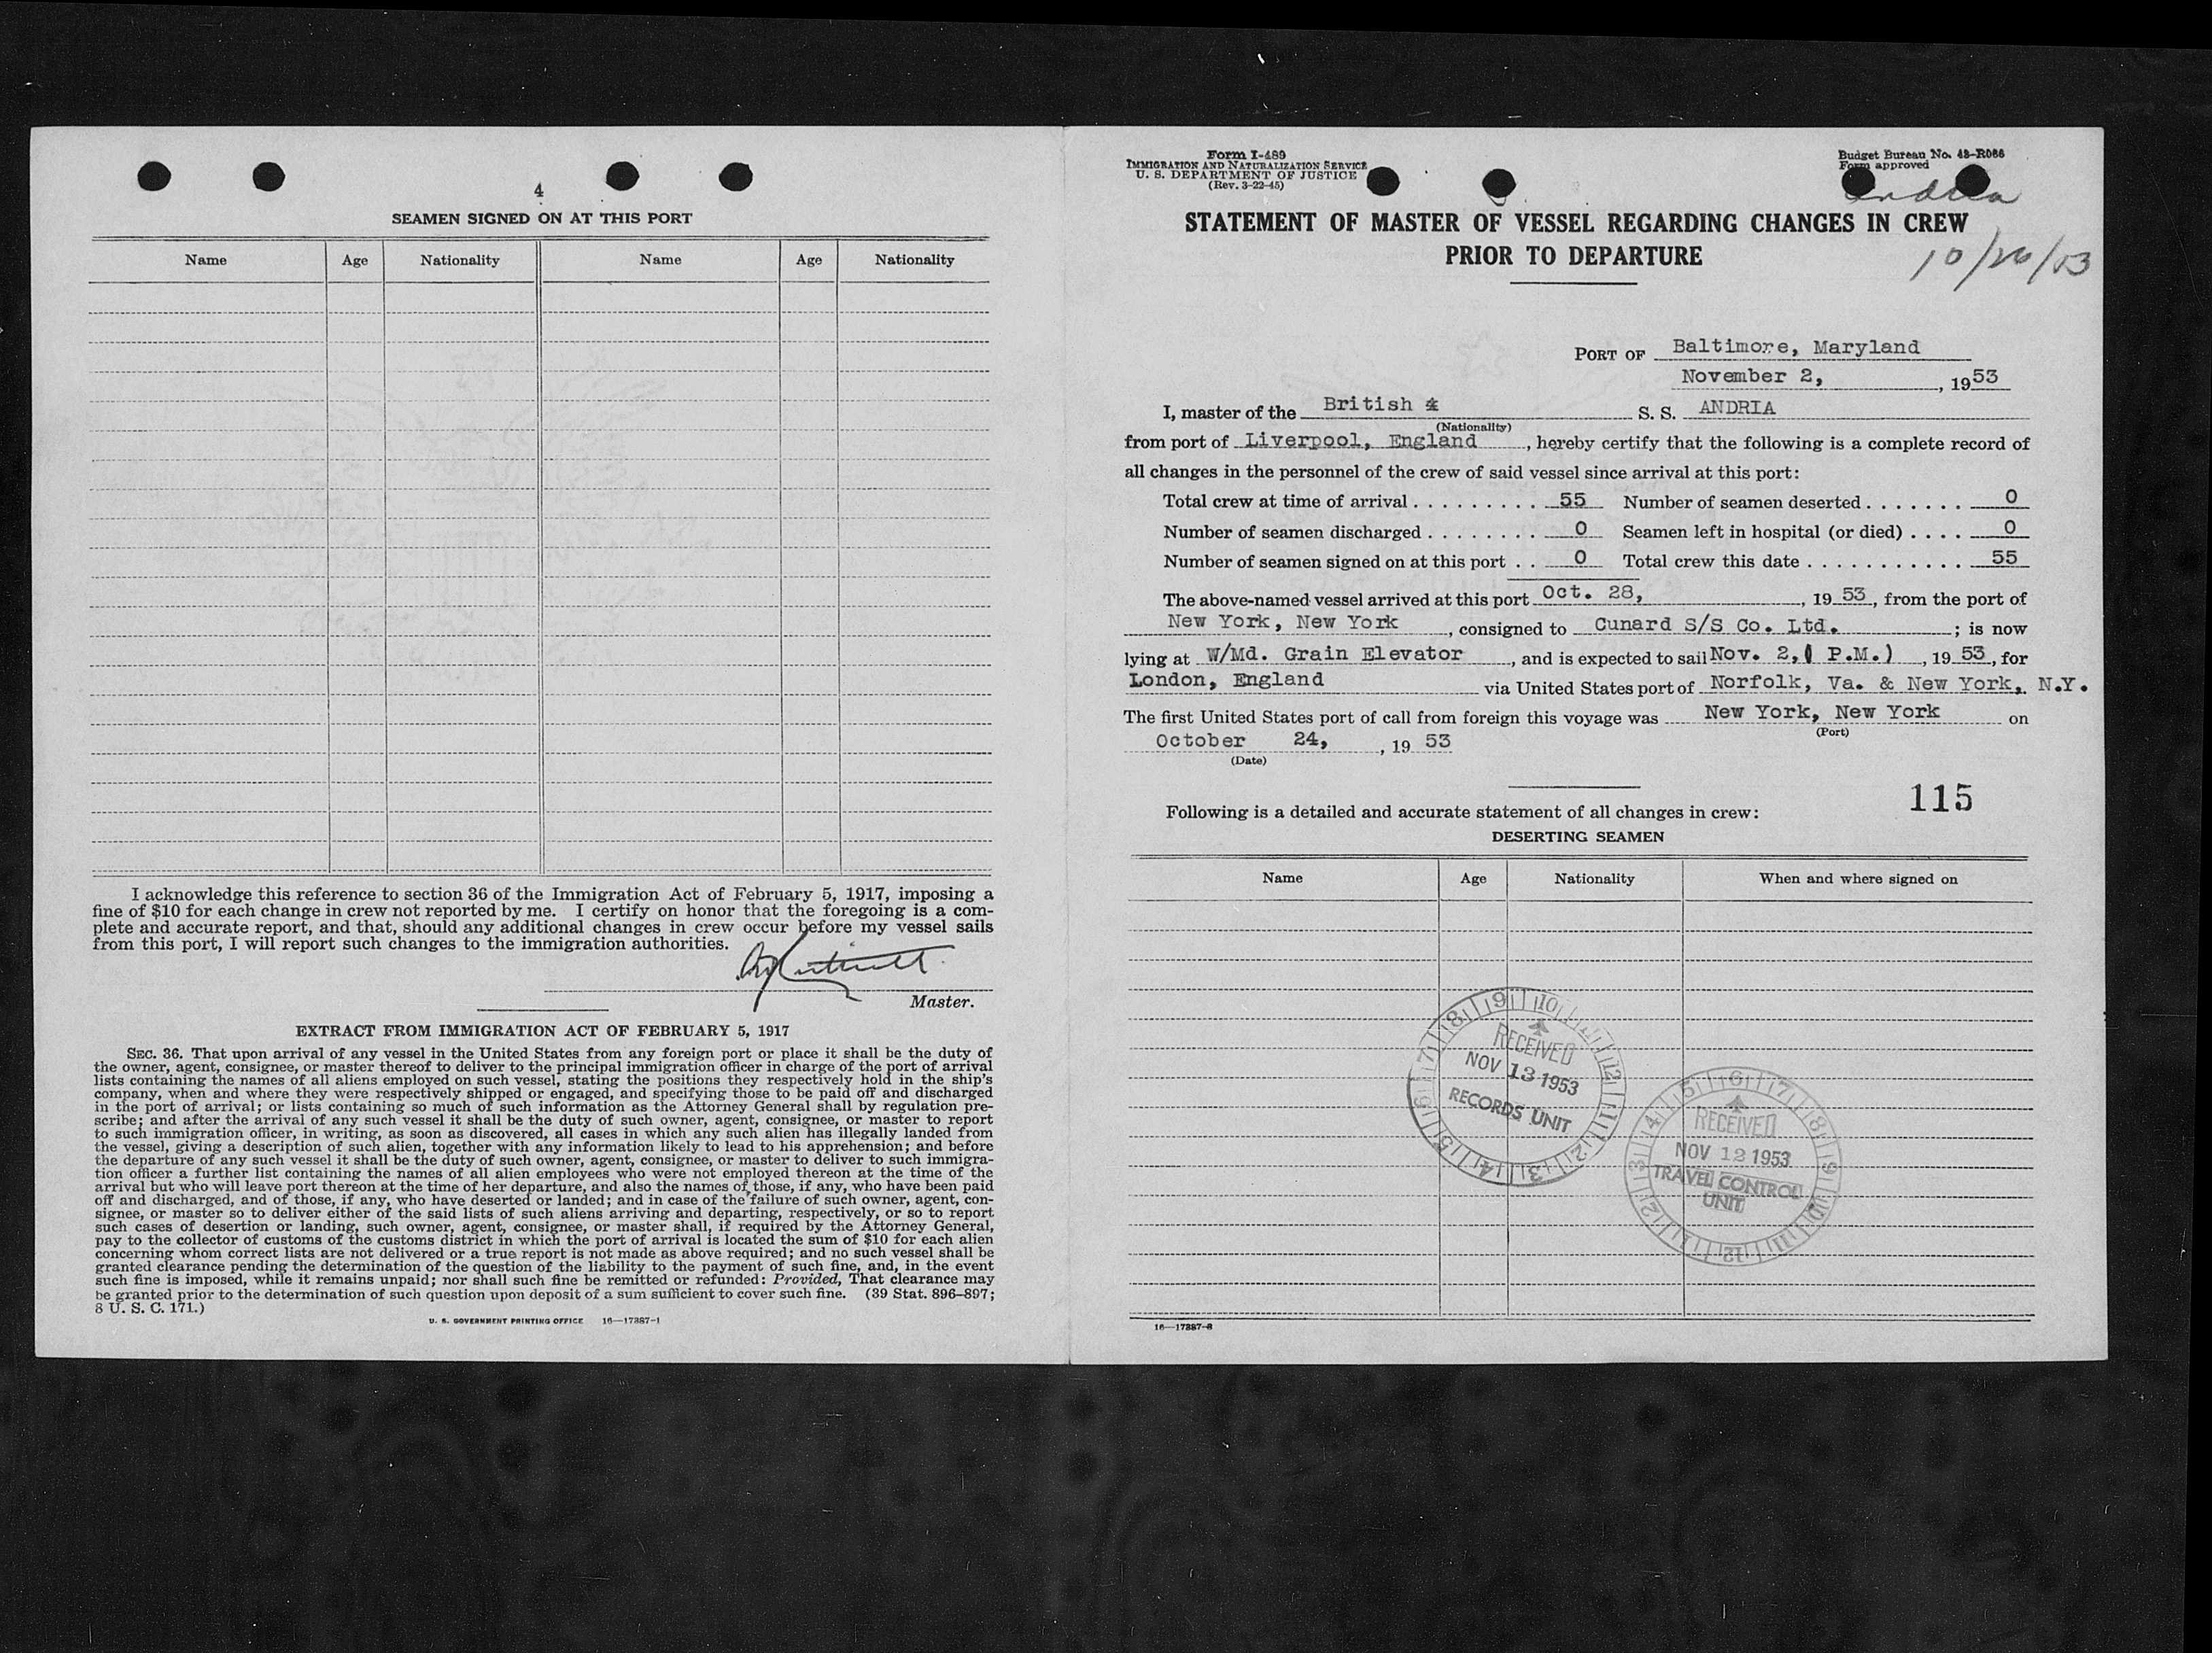 4
SEAMEN SIGNED ON AT THIS PORT
Name Age Nationality Name Age Nationality
I acknowledge this reference to section 36 of the Immigration Act of February 5, 1917, imposing a
fine of $10 for each change in crew not reported by me. I certify on honor that the foregoing is a com-
plete and accurate report, and that, should any additional changes in crew occur before my vessel sails
from this port, I will report such changes to the immigration authorities.
Master.
EXTRACT FROM IMMIGRATION ACT OF FEBRUARY 5, 1917
SEC. 36. That upon arrival of any vessel in the United States from any foreign port or place it shall be the duty of
the owner, agent, consignee, or master thereof to deliver to the principal immigration officer in charge of the port of arrival
lists containing the names of all aliens employed on such vessel, stating the positions they respectively hold in the ship's
company, when and where they were respectively shipped or engaged, and specifying those to be paid off and discharged
in the port of arrival; or lists containing so much of such information as the Attorney General shall by regulation pre-
scribe; and after the arrival of any such vessel it shall be the duty of such owner, agent, consignee, or master to report
to such immigration officer, in writing, as soon as discovered, all cases in which any such alien has illegally landed from
the vessel, giving a description of such alien, together with any information likely to lead to his apprehension; and before
the departure of any such vessel it shall be the duty of such owner, agent, consignee, or master to deliver to such immigra-
tion officer a further list containing the names of all alien employees who were not employed thereon at the time of the
arrival but who will leave port thereon at the time of her departure, and also the names of those, if any, who have been paid
off and discharged, and of those, if any, who have deserted or landed; and in case of the failure of such owner, agent, con-
signee, or master so to deliver either of the said lists of such aliens arriving and departing, respectively, or so to report
such cases of desertion or landing, such owner, agent, consignee, or master shall, if required by the Attorney General,
pay to the collector of customs of the customs district in which the port of arrival is located the sum of $10 for each alien
concerning whom correct lists are not delivered or a true report is not made as above required; and no such vessel shall be
granted clearance pending the determination of the question of the liability to the payment of such fine, and, in the event
such fine is imposed, while it remains unpaid; nor shall such fine be remitted or refunded: Provided, That clearance may
be granted prior to the determination of such question upon deposit of a sum sufficient to cover such fine. (39 Stat. 896–897;
8 U. S. C. 171.)
U. S. GOVERNMENT PRINTING OFFICE 16—17387-1
Form I-489
IMMIGRATION AND NATURALIZATION SERVICE
U. S. DEPARTMENT OF JUSTICE
(Rev. 3-22-45)
Budget Bureau No. 43-R086
Form approved
Andria
STATEMENT OF MASTER OF VESSEL REGARDING CHANGES IN CREW
PRIOR TO DEPARTURE
10/26/53
PORT OF Baltimore, Maryland
November 2, , 1953
I, master of the British S. S. ANDRIA
(Nationality)
from port of Liverpool, England , hereby certify that the following is a complete record of
all changes in the personnel of the crew of said vessel since arrival at this port:
Total crew at time of arrival . . . . . . . . . . 55 Number of seamen deserted . . . . . . . 0
Number of seamen discharged . . . . . . . . 0 Seamen left in hospital (or died) . . . . 0
Number of seamen signed on at this port . . 0 Total crew this date . . . . . . . . . . . 55
The above-named vessel arrived at this port Oct. 28, , 19 53, from the port of
New York, New York , consigned to Cunard S/S Co. Ltd. ; is now
lying at W/Md. Grain Elevator , and is expected to sail Nov. 2,( P.M.) , 19 53, for
London, England via United States port of Norfolk, Va. & New York, N.Y.
The first United States port of call from foreign this voyage was New York, New York on
(Port)
October 24, , 19 53
(Date)
115
Following is a detailed and accurate statement of all changes in crew:
DESERTING SEAMEN
Name Age Nationality When and where signed on
RECEIVED
NOV 13 1953
RECORDS UNIT
RECEIVED
NOV 12 1953
TRAVEL CONTROL
UNIT
16—17387-3